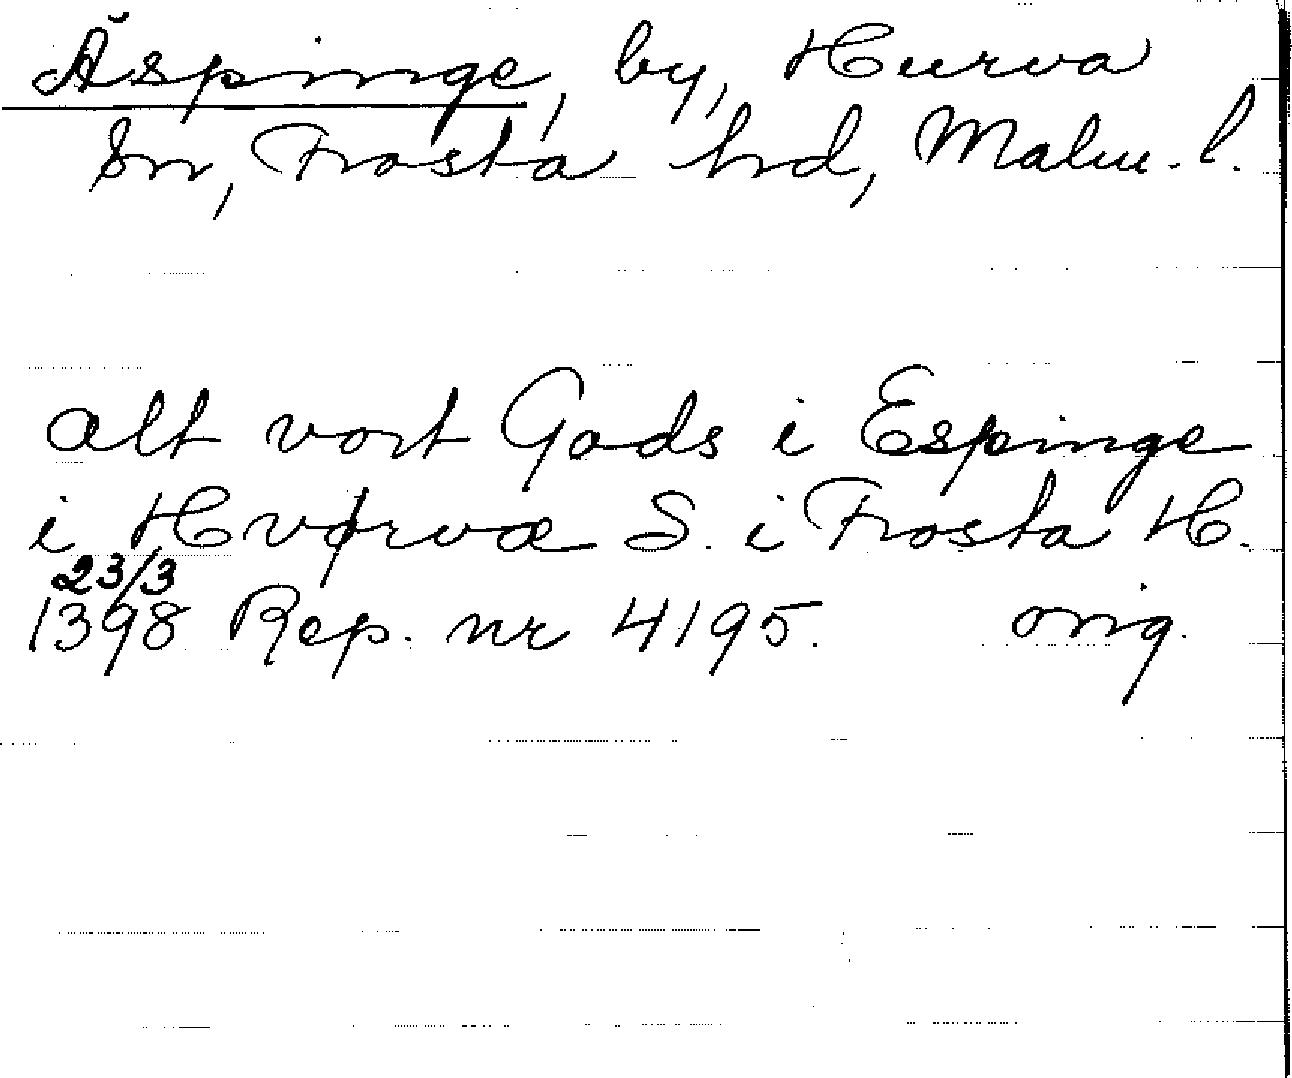 Äspinge, by, Hurva
sn, Frosta hrd, Malm. l.
alt vort Gods i Espinge
i Hvørvæ S. i Frosta H.
23/3
1398 Rep. nr 4195. orig.